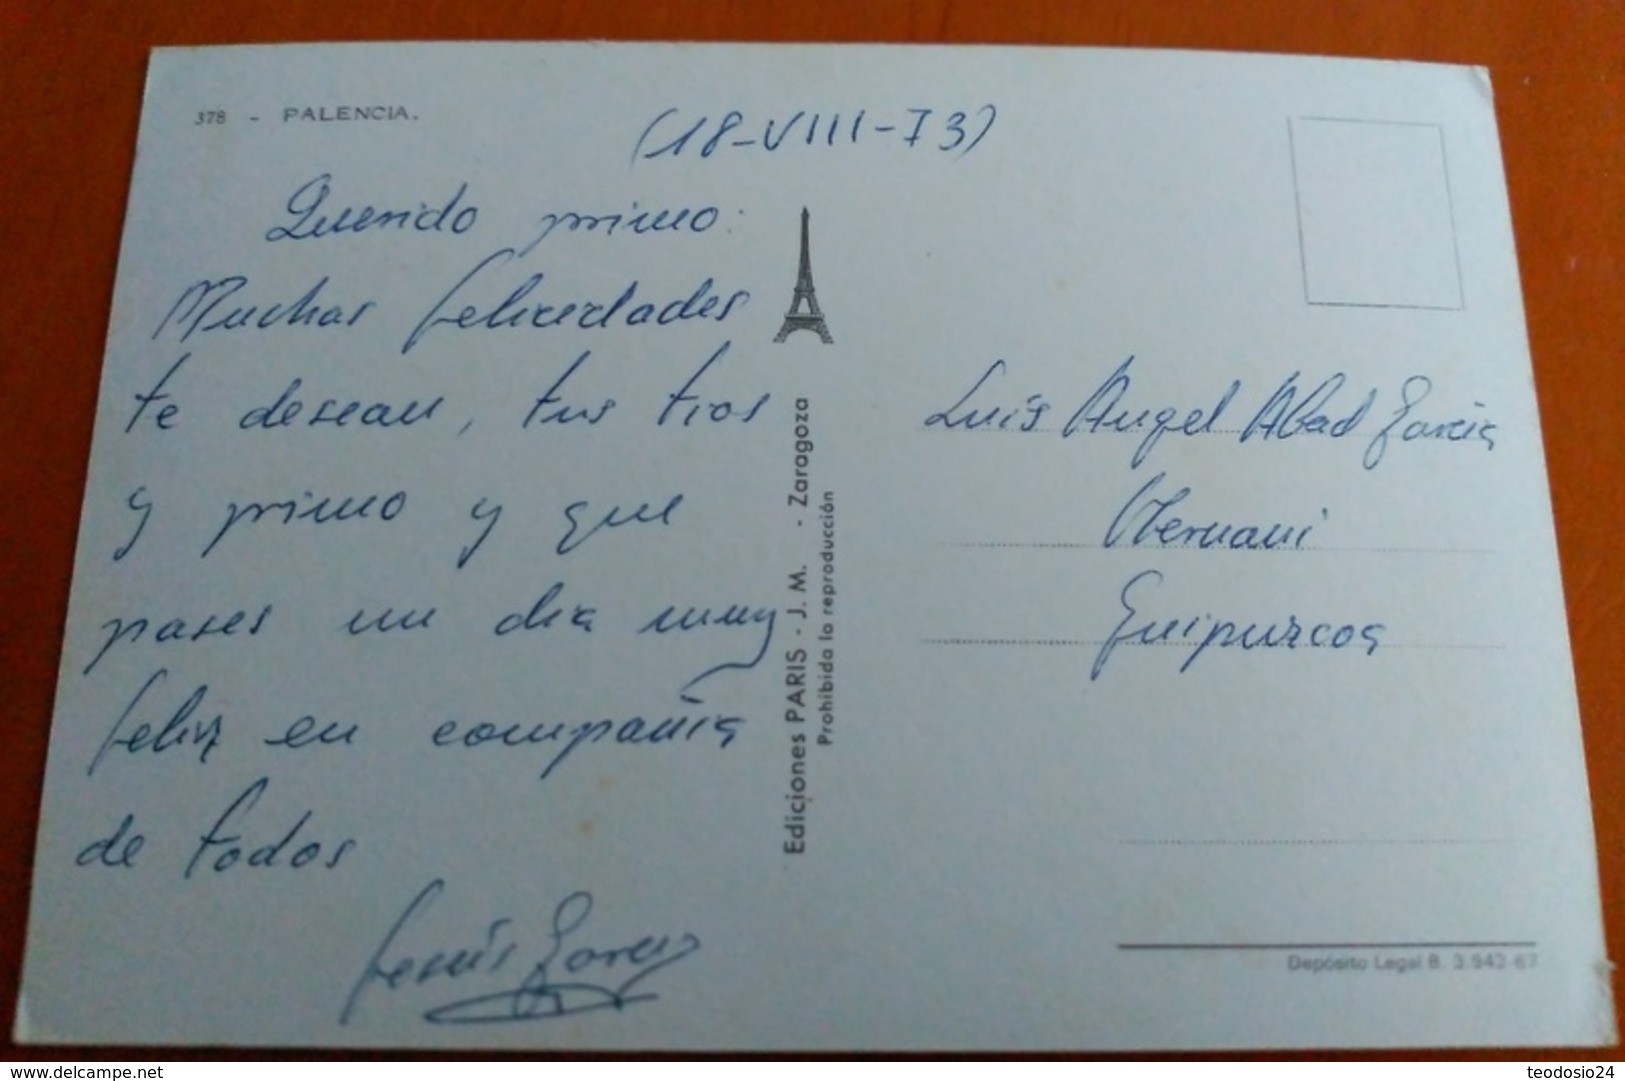 378 - PALENCIA.
(18-VIII-73)
Querido primo:
Muchas felicidades
te desean, tus tios
y primo y que
pases un dia muy
feliz en compañia
de todos
Jesús Garcia
Ediciones PARIS - J. M. - Zaragoza
Prohibida la reproducción
Luis Angel Abad Garcia
Hernani
Guipuzcoa
Depósito Legal B. 3.942-67
www.delcampe.net
teodosio24